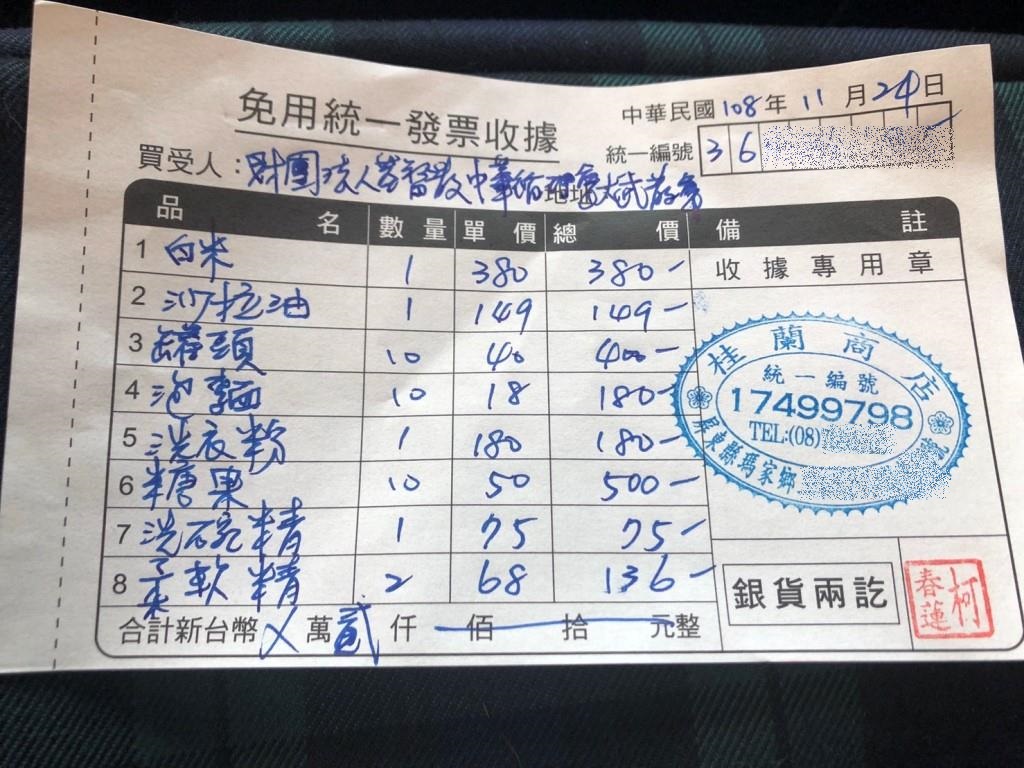 免用統一發票收據
中華民國108年11月24日
統一編號 36
買受人:財團法人基督教中華循理會
地址
品名 數量 單價 總價 備註
1 白米 1 380 380-
2 沙拉油 1 149 149-
3 罐頭 10 40 400-
4 泡麵 10 18 180-
5 洗衣粉 1 180 180-
6 糖果 10 50 500-
7 洗碗精 1 75 75-
8 柔軟精 2 68 136-
合計新台幣 X 萬 貳 仟 佰 拾 元整
收據專用章
桂蘭商店
統一編號
17499798
TEL:(08)
屏東縣瑪家鄉
號
銀貨兩訖
柯春蓮